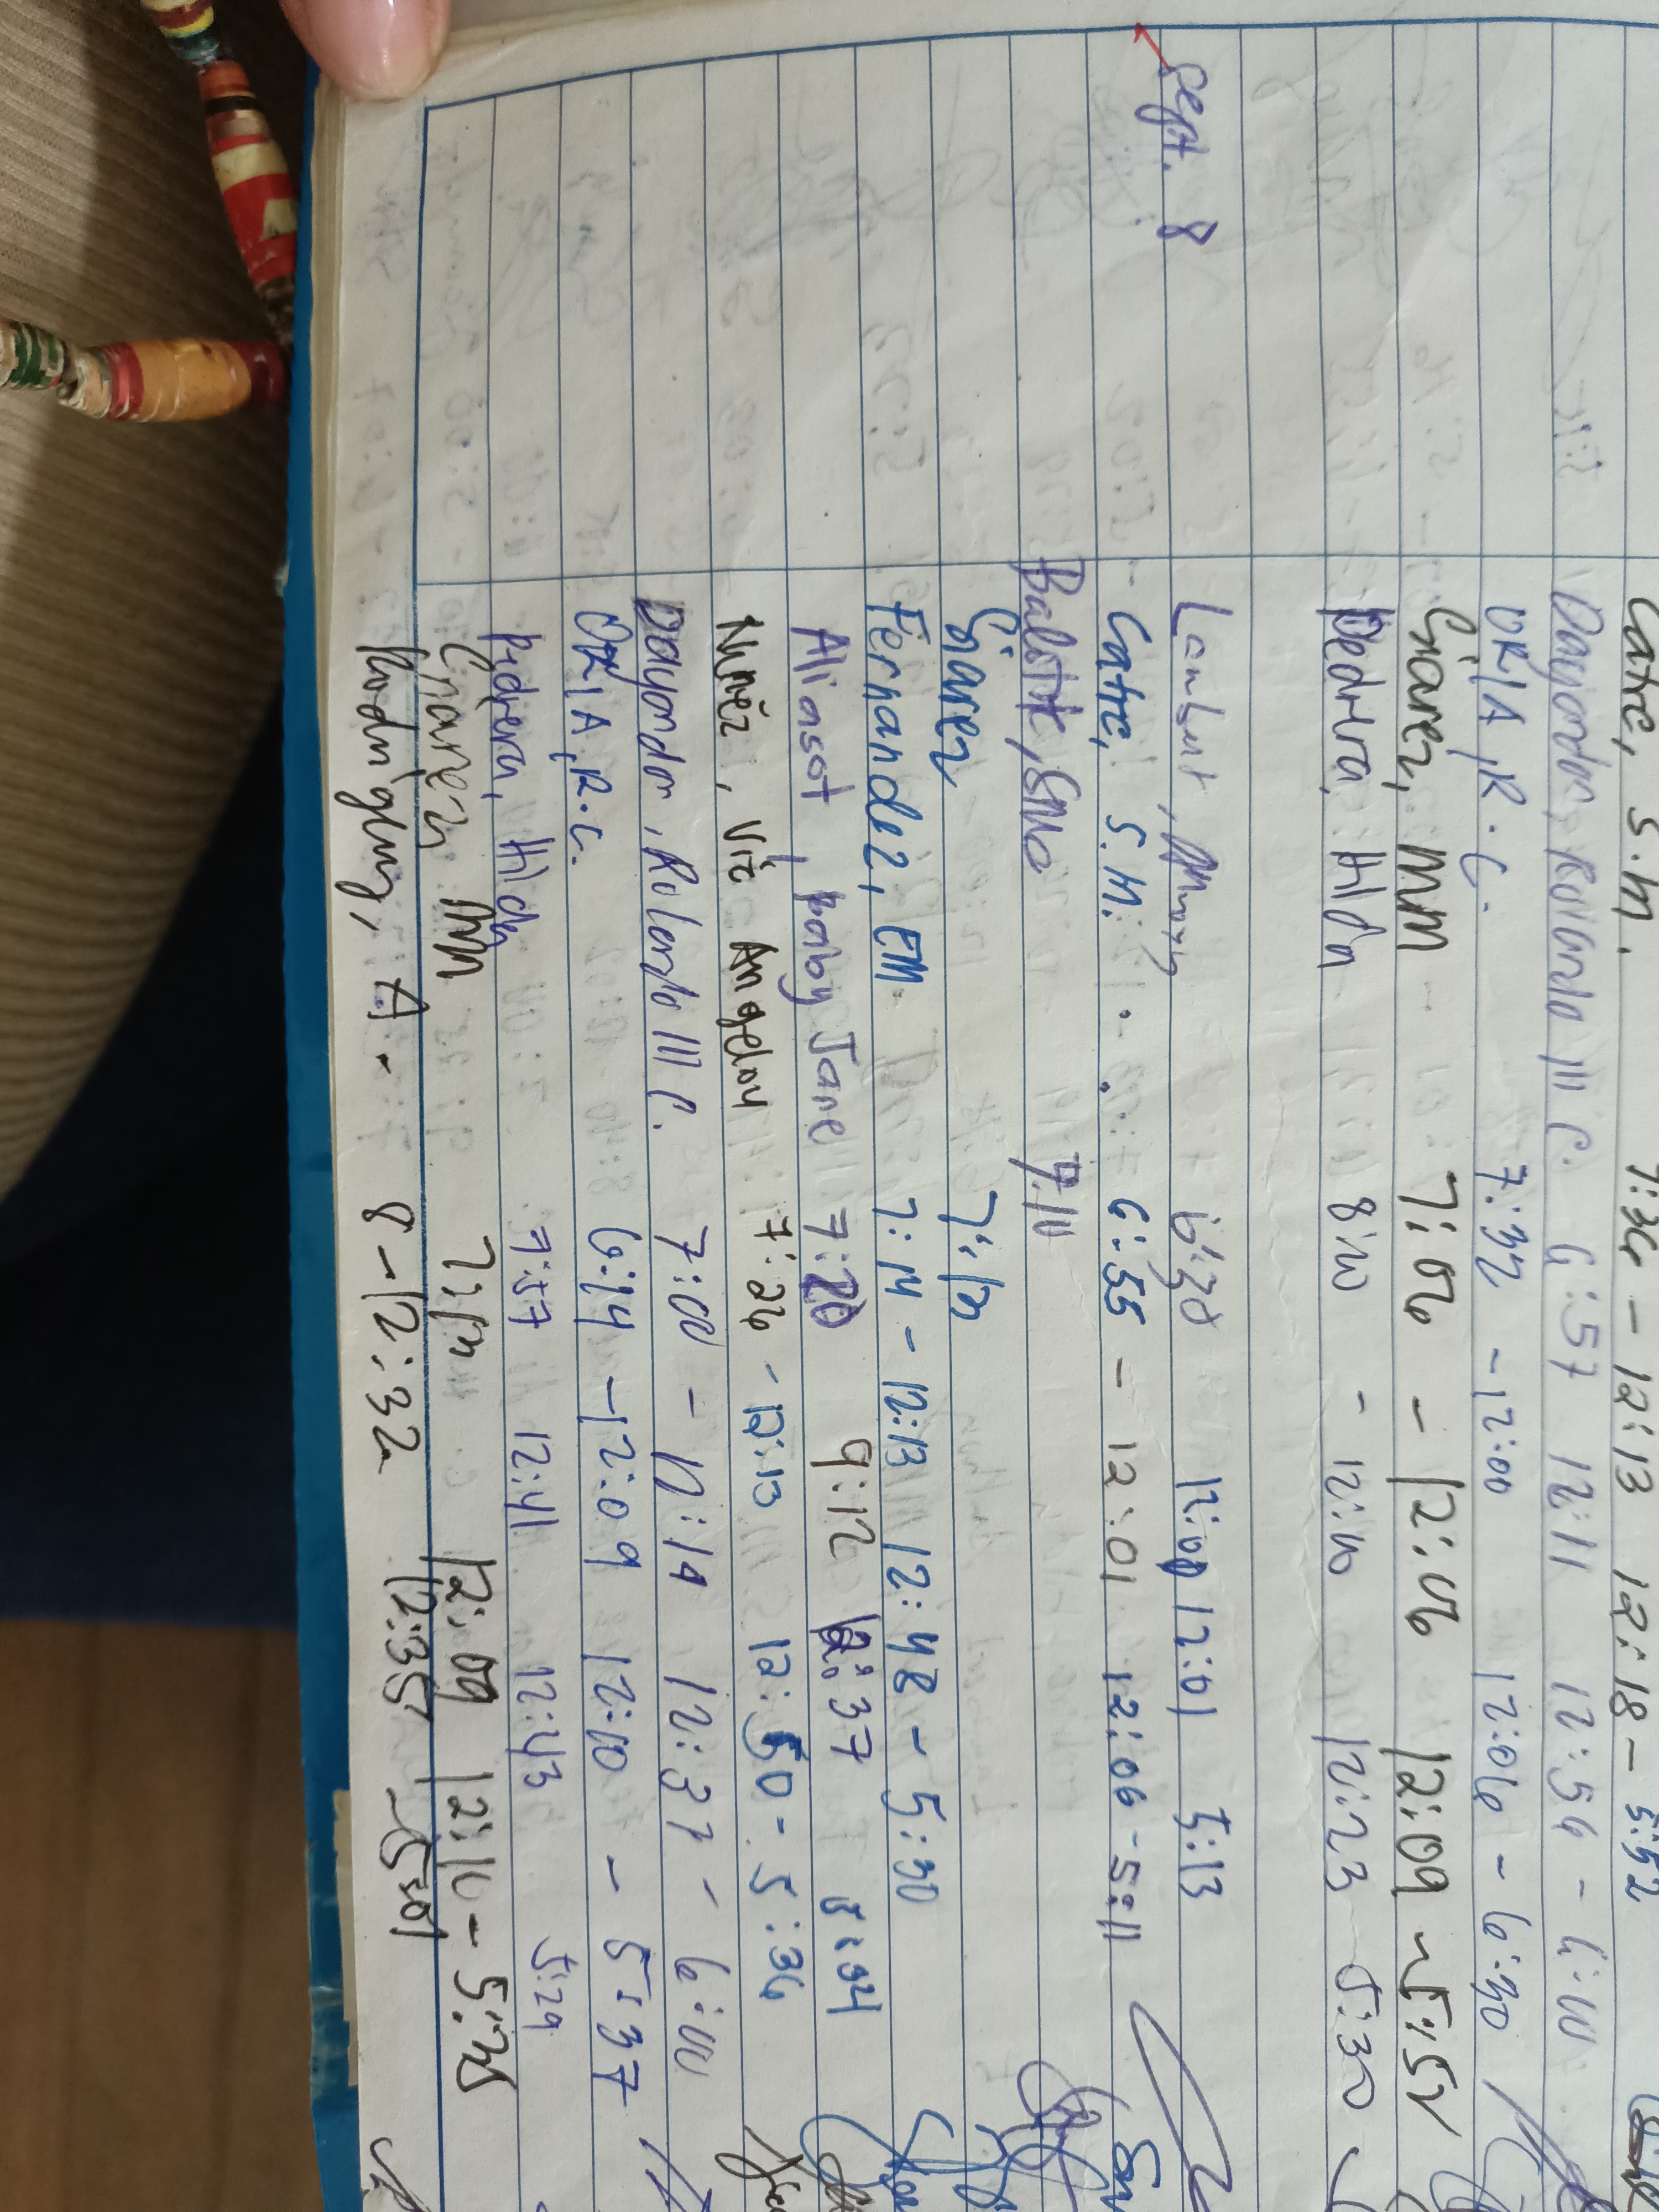 Catre, S.M. 7:36 - 12:13 12:18 - 5:52
Dayondon, Rolando III C. 6:57 12:11 12:54 - 6:00
ORIA, R.C. 7:32 - 12:00 12:06 - 6:30
Gianez, MM 7:06 - 12:06 12:09 - 5:52
Pedrera, Hilda 8:00 - 12:10 12:23 5:30
Sept. 8 6:30 12:00 12:01 5:13
Catre, S.M. 6:55 - 12:01 12:06 - 5:11
7:10
Gianez
Fernandez, EM 7:14 - 12:13 12:48 - 5:30
Aliasot, Baby Jane 7:20 9:12 12:37 5:34
Nuñez, Viz Angelou 7:26 - 12:13 12:50 - 5:36
Dayondon, Rolando III C. 7:00 - 12:14 12:37 - 6:00
ORIA, R.C. 6:14 - 12:09 12:10 - 5:37
Pedrera, Hilda 7:57 12:41 12:43 5:29
Gianez, MM 12:09 12:10 - 5:35
A. 8 - 12:32 12:35 - 5:01